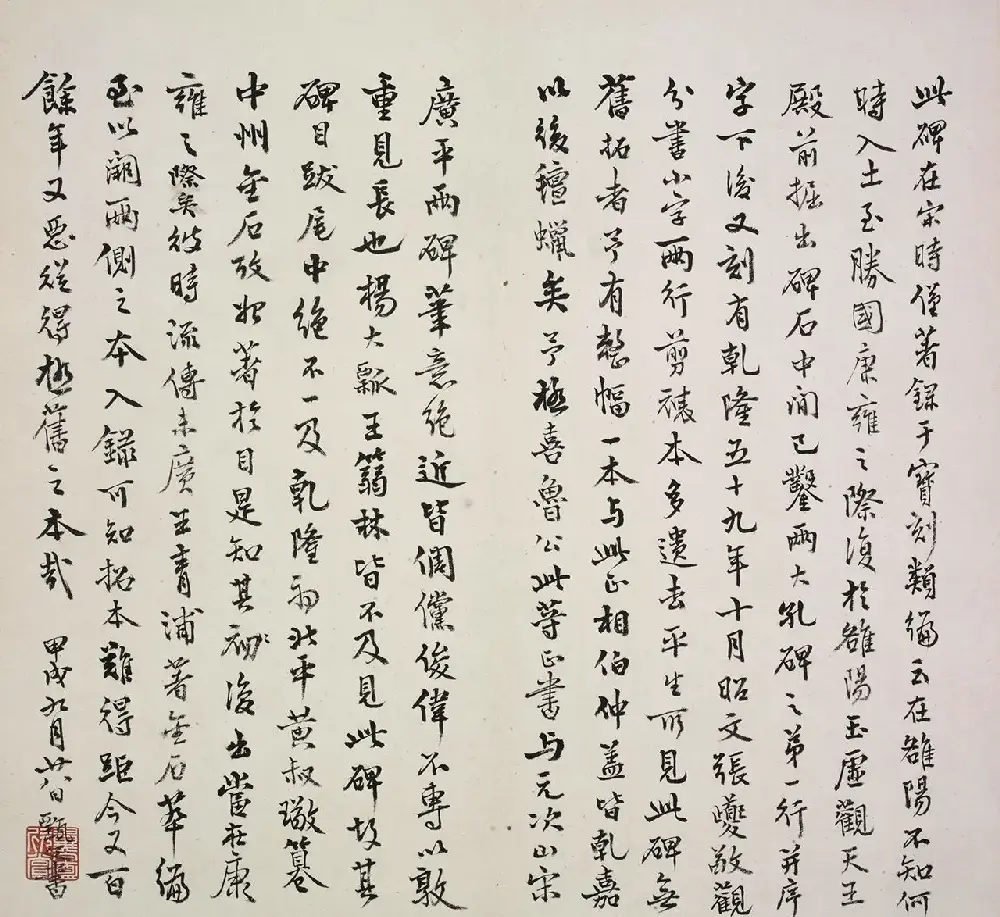 此碑在宋時僅著錄于寶刻類編云在雒陽不知何
時入土至勝國康雍之際復於雒陽玉虛觀天王
殿前掘出碑石中間已鑿兩大孔碑之第一行并序
字下後又刻有乾隆五十九年十月昭文張燮敬觀
分書小字兩行剪裱本多遺去平生所見此碑無
舊拓者予有整幅一本与此正相伯仲蓋皆乾嘉
以後氊蠟矣予極喜魯公此等正書与元次山宋
廣平兩碑筆意絕近皆倜儻俊偉不專以敦
重見長也楊大瓢王篛林皆不及見此碑故其
碑目跋尾中絕不一及乾隆初北平黄叔璥纂
中州金石攷始著於目是知其初後出當在康
雍之際矣彼時流傳未廣王青浦著金石萃編
至以闕兩側之本入録可知拓本難得距今又百
餘年又惡從得極舊之本哉 甲戌九月廿八日 書